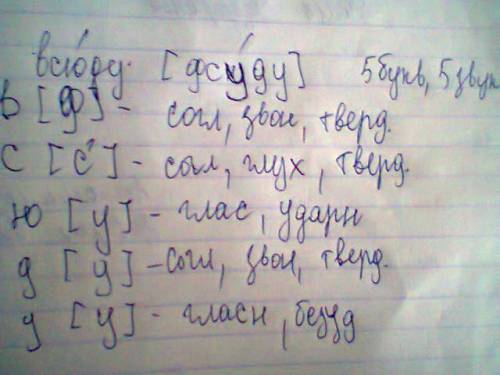 всю́ду. [фсу́ду] 5 букв, 5 звук
В [ф] - согл, звон, тверд.
С [с'] - согл, глух, тверд.
ю [у] - глас, ударн
д [у] - согл, звон, тверд.
у [у] - гласн, безуд